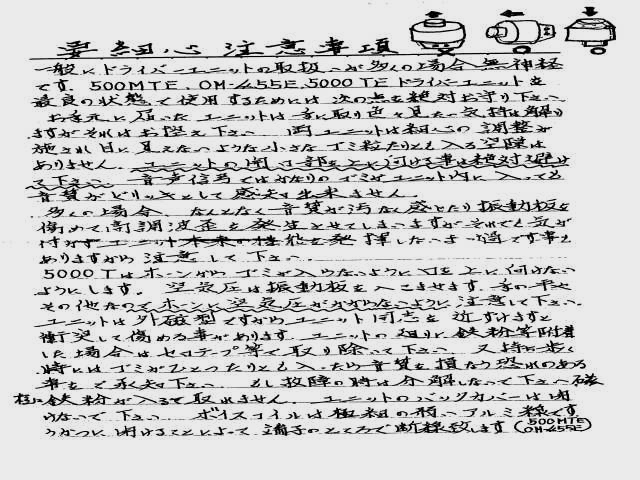 要細心注意事項
一般にドライバーユニットの取扱いが多くの場合無神経
です。500MTE、OM-455E、5000TEドライバーユニットを
最良の状態で使用するためには次の点を絶対お守り下さい
お手元に届いたユニットは手に取り音を見たい気持は解り
ますがそれはお控え下さい 両ユニットは細心の調整が
施され目に見えないような小さなゴミ粒たりとも入る空隙は
ありません。ユニットの開口部を上に向ける事は絶対避け
て下さい。音声信号でほかのゴミがユニット内に入っても
音質がビリッとして感知出来ません。
多くの場合、なんとなく音質が汚なく感じたり振動板を
傷めて高調波歪を発生させてしまいますがそれでも気が
付かずユニット本来の性能を発揮しないまゝ過す事も
ありますから注意して下さい。
5000Tはホーンからゴミが入らないように口を上に向けない
ようにします。空気圧は振動板を入こませます。手の平や
その他なのでホーンに空気圧がかからないように注意して下さい。
ユニットは外磁型ですからユニット同志を近ずけますと
衝突して傷める事があります。ユニットの廻りに鉄粉等附着
した場合はセロテープ等で取り除いて下さい 又持ち歩く
時にはゴミがひとつたりとも入ったら音質を損なう恐れのある
事をご承知下さい もし故障の時は分解しないで下さい 磁
極に鉄粉が入ると取れません。ユニットのバックカバーは開
けないで下さい。ボイスコイルは極細の弱いアルミ線です
うかつに開けることによって端子のところで断線致します (500MTE OM-455E)